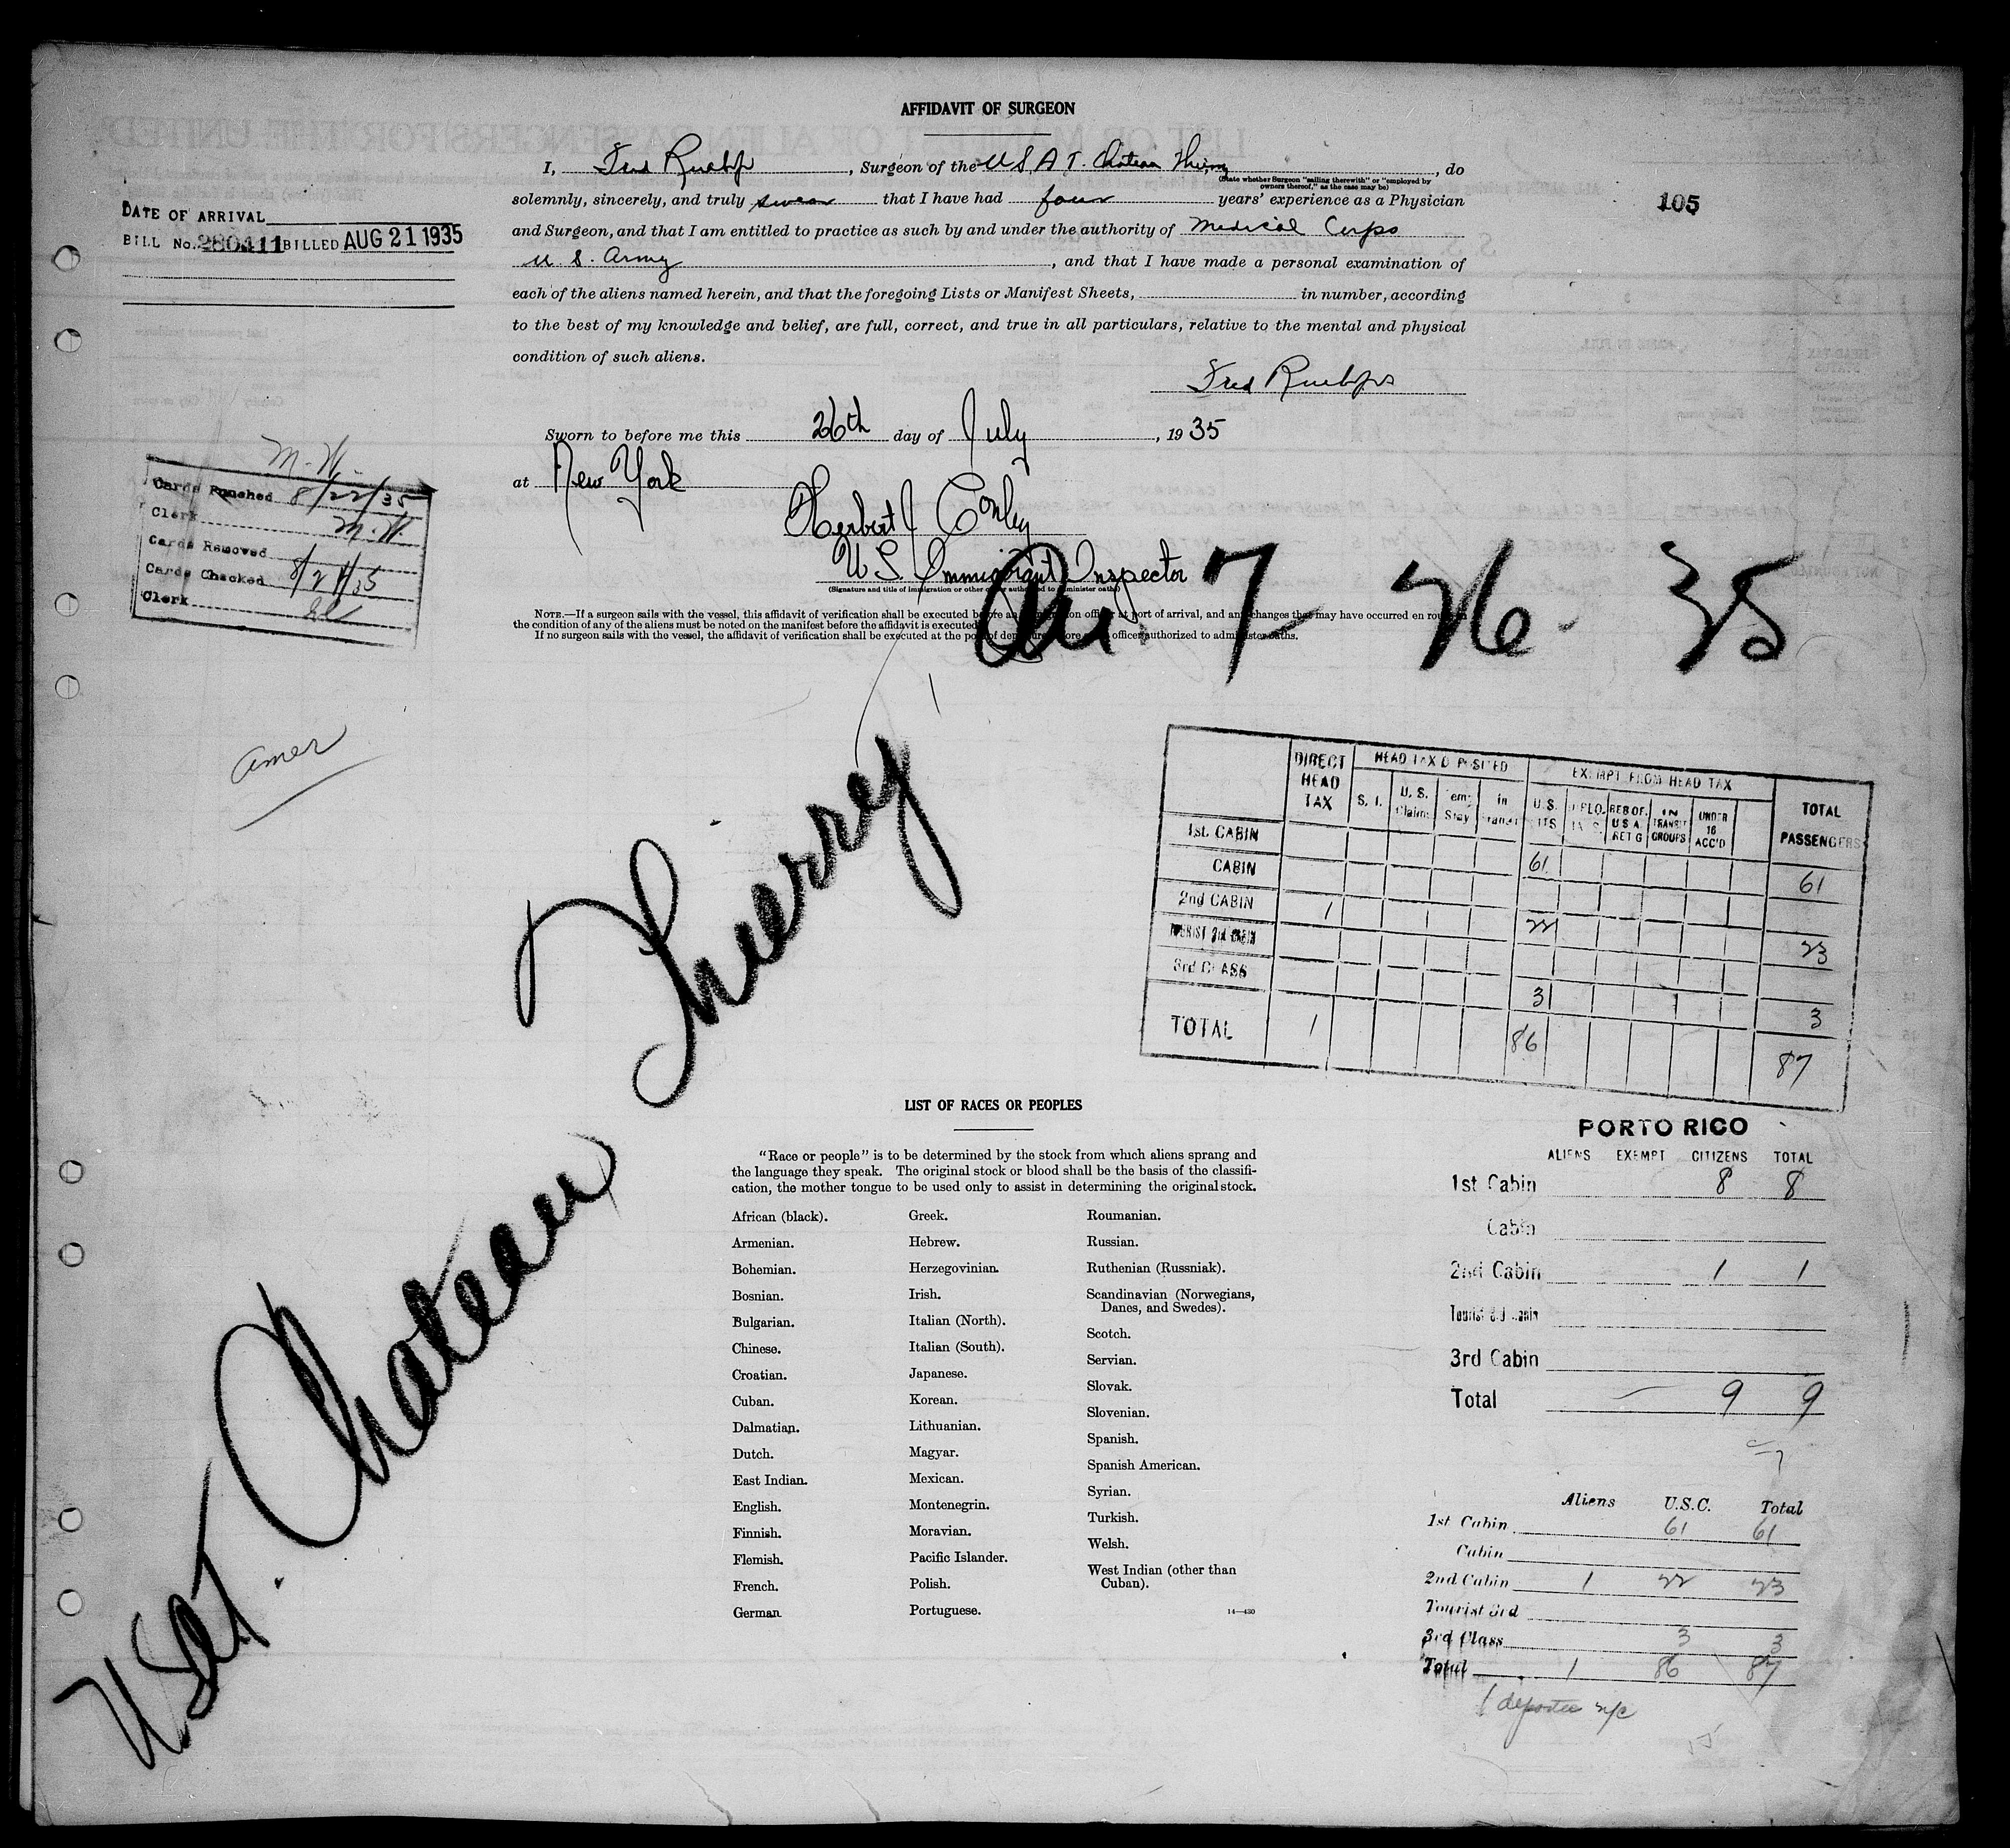 AFFIDAVIT OF SURGEON
I, Fred, Surgeon of the U S A T. Chateau Thierry, do
(State whether Surgeon "sailing therewith" or "employed by
owners thereof," as the case may be)
solemnly, sincerely, and truly swear that I have had four years' experience as a Physician
and Surgeon, and that I am entitled to practice as such by and under the authority of Medical Corps
U. S. Army, and that I have made a personal examination of
each of the aliens named herein, and that the foregoing Lists or Manifest Sheets, in number, according
to the best of my knowledge and belief, are full, correct, and true in all particulars, relative to the mental and physical
condition of such aliens.
Fred
Sworn to before me this 26th day of July, 1935
at New York
Herbert J Conley
U.S. Immigrant Inspector
(Signature and title of immigration or other officer authorized to administer oaths)
NOTE.—If a surgeon sails with the vessel, this affidavit of verification shall be executed before an immigration officer at port of arrival, and any changes that may have occurred en route in
the condition of any of the aliens must be noted on the manifest before the affidavit is executed.
If no surgeon sails with the vessel, the affidavit of verification shall be executed at the port of departure before an officer authorized to administer oaths.
105
DATE OF ARRIVAL
BILL No. 280411 BILLED AUG 21 1935
M.W.
Cards Punched 8/22/35
Clerk M.W.
Cards Removed
Cards Checked 8/24/35
Clerk
Amer
7-26-35
USAT. Chateau Thierry
DIRECT HEAD TAX HEAD TAX DEPOSITED EXEMPT FROM HEAD TAX TOTAL PASSENGERS
S. I. U. S. Claims Temp Stay in Transit U.S. CITS DIPLOMATS RES OF. U S A RET G IN TRANSIT GROUPS UNDER 16 ACC'D
1st CABIN 61 61
CABIN
2nd CABIN 1 22 23
TOURIST 3rd CABIN
3rd CLASS 3 3
TOTAL 1 86 87
LIST OF RACES OR PEOPLES
"Race or people" is to be determined by the stock from which aliens sprang and
the language they speak. The original stock or blood shall be the basis of the classifi-
cation, the mother tongue to be used only to assist in determining the original stock.
African (black).
Armenian.
Bohemian.
Bosnian.
Bulgarian.
Chinese.
Croatian.
Cuban.
Dalmatian.
Dutch.
East Indian.
English.
Finnish.
Flemish.
French.
German
Greek.
Hebrew.
Herzegovinian.
Irish.
Italian (North).
Italian (South).
Japanese.
Korean.
Lithuanian.
Magyar.
Mexican.
Montenegrin.
Moravian.
Pacific Islander.
Polish.
Portuguese.
Roumanian.
Russian.
Ruthenian (Russniak).
Scandinavian (Norwegians,
Danes, and Swedes).
Scotch.
Servian.
Slovak.
Slovenian.
Spanish.
Spanish American.
Syrian.
Turkish.
Welsh.
West Indian (other than
Cuban).
14—430
PORTO RICO
ALIENS EXEMPT CITIZENS TOTAL
1st Cabin 8 8
Cabin
2nd Cabin 1 1
Tourist 3rd Cabin
3rd Cabin
Total — 9 9
Aliens U.S.C. Total
1st Cabin 61 61
Cabin
2nd Cabin 1 22 23
Tourist 3rd
3rd Class 3 3
Total 1 86 87
1 deportee n/c